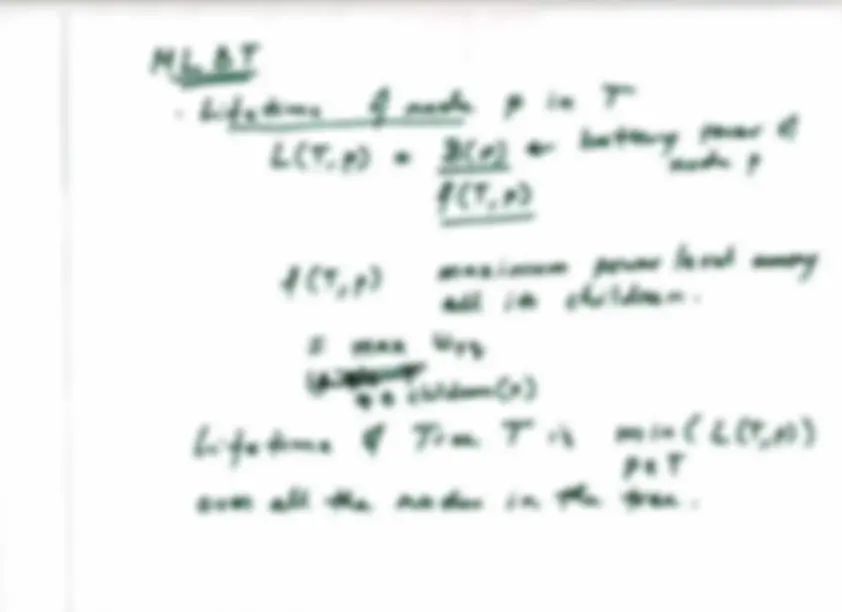 MLBT
. Lifetime of node p in T
L(T,p) = B(p) ← battery power of node p
f(T,p)
f(T,p) maximum power level among
all its children.
= max
q ∈ children(p)
Lifetime of Tree T is min (L(T,p))
p ∈ T
over all the nodes in the tree.